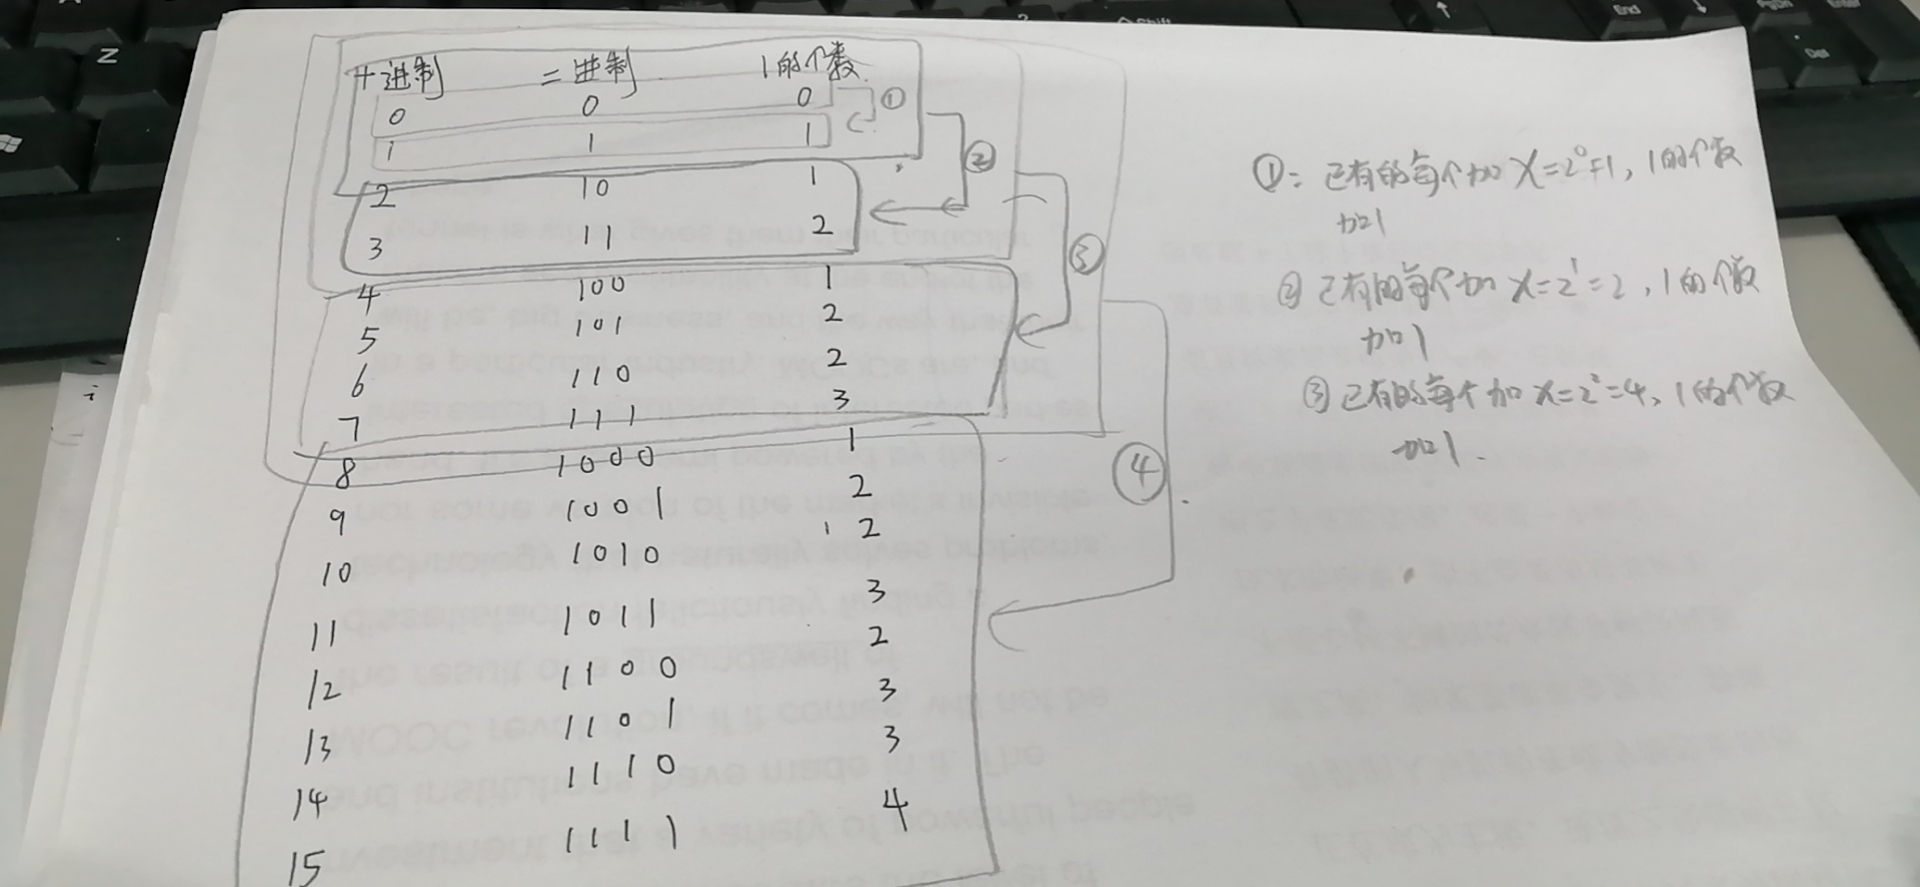 十进制 二进制 1的个数
0 0 0 ①
1 1 1
2 10 1 ②
3 11 2
4 100 1 ③
5 101 2
6 110 2
7 111 3
8 1000 1 ④
9 1001 2
10 1010 2
11 1011 3
12 1100 2
13 1101 3
14 1110 3
15 1111 4
①：已有的每个加X=2⁰=1，1的个数
加1
② 已有的每个加X=2¹=2，1的个数
加1
③ 已有的每个加X=2²=4，1的个数
加1.
Z
Shift
End